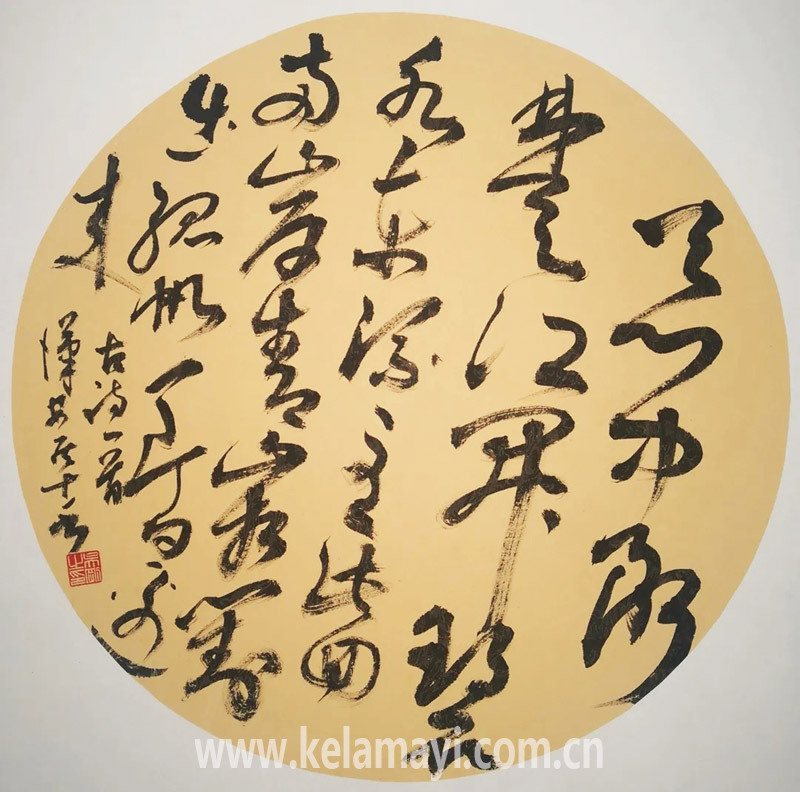 天门中断
楚江开碧
水东流至此回
两岸青山相对
出孤帆一片日边
来
古诗一首
www.kelamayi.com.cn